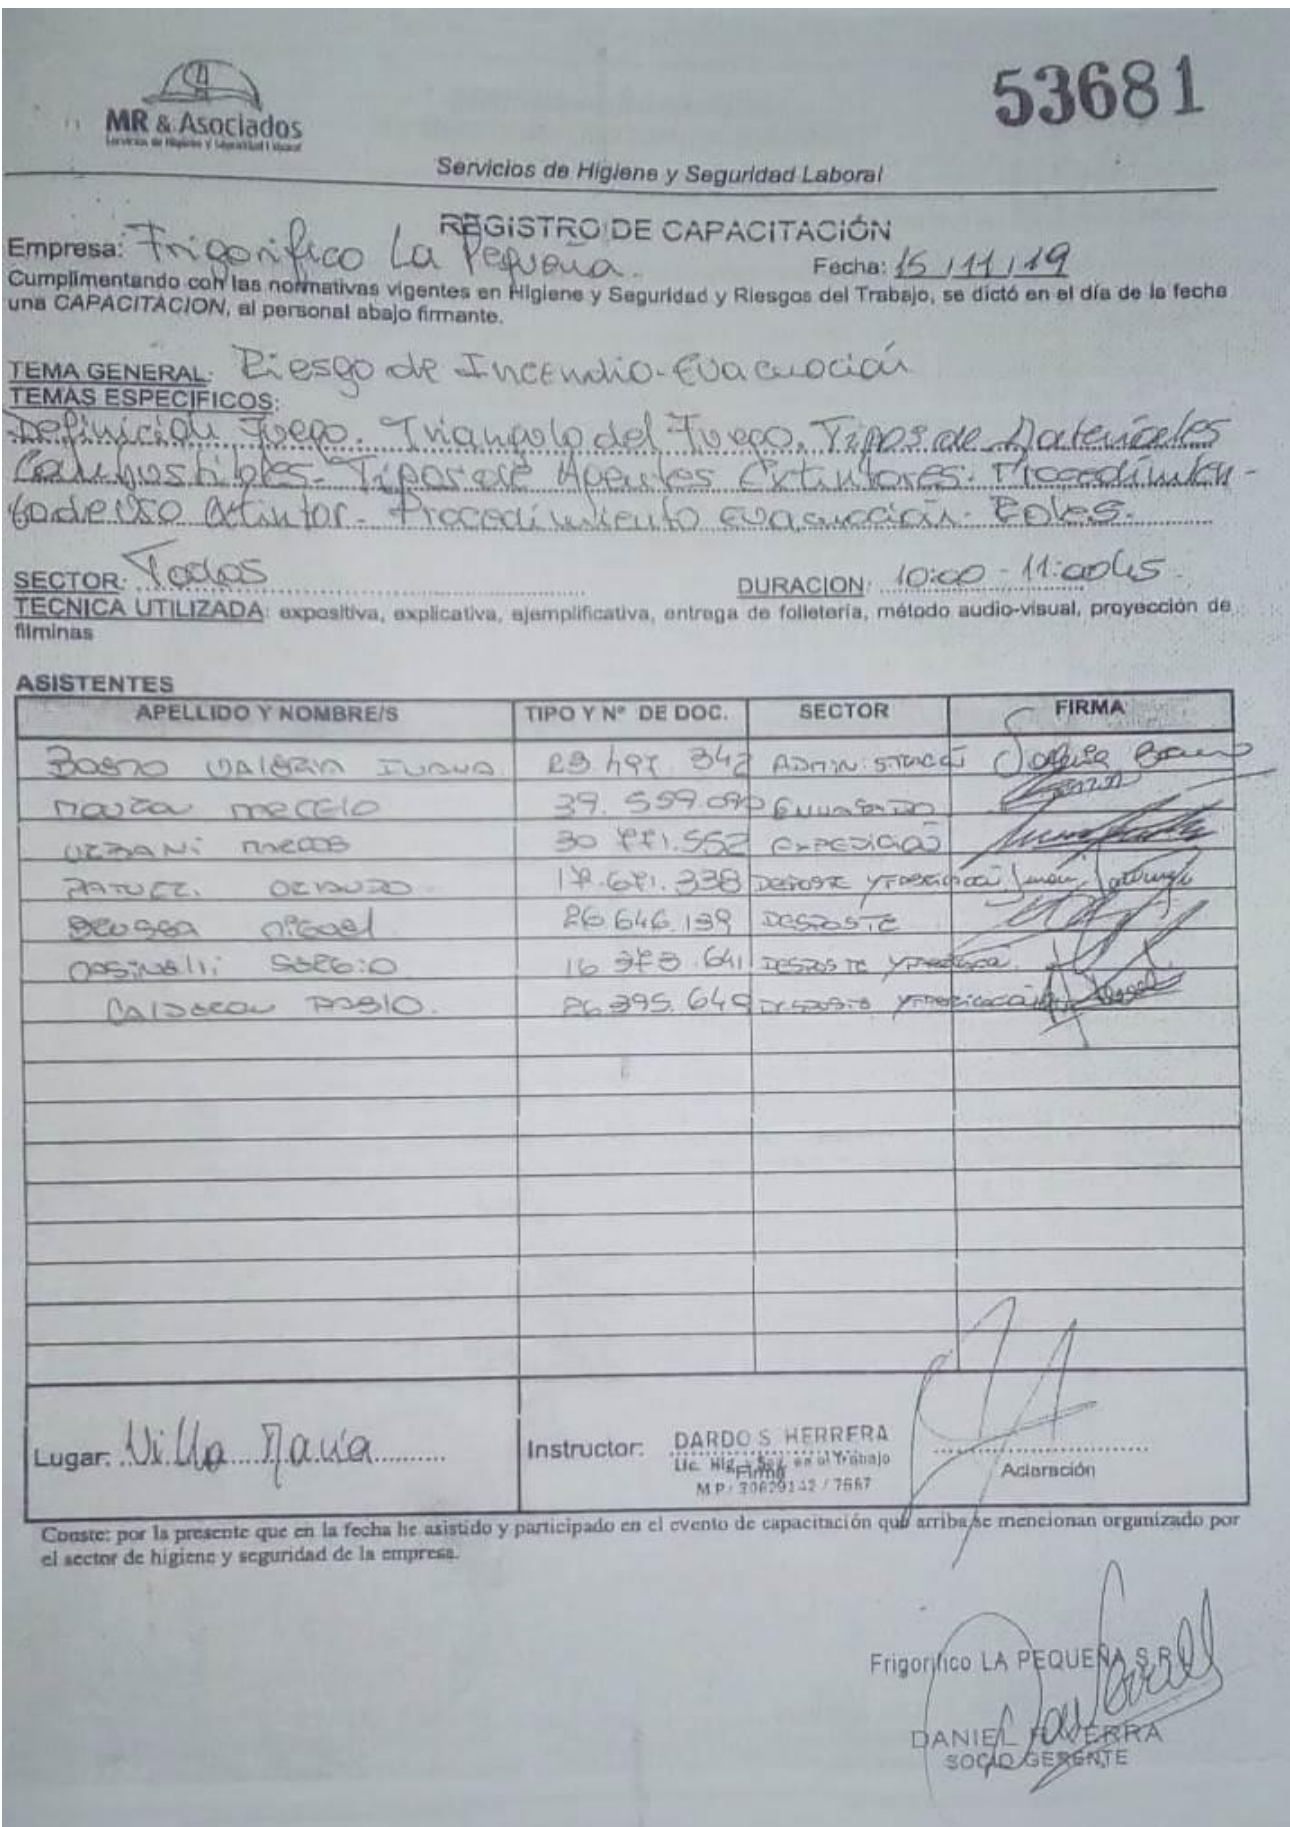 53681
MR & Asociados
Servicios de Higiene y Seguridad Laboral
Servicios de Higiene y Seguridad Laboral
REGISTRO DE CAPACITACIÓN
Empresa: Frigorifico La Pequeña.
Fecha: 15/11/19
Cumplimentando con las normativas vigentes en Higiene y Seguridad y Riesgos del Trabajo, se dictó en el día de la fecha
una CAPACITACION, al personal abajo firmante.
TEMA GENERAL: Riesgo de Incendio-Evacuación
TEMAS ESPECIFICOS:
Definición Fuego. Triangulo del Fuego. Tipos de Materiales
Combustibles- Tipos de Agentes Extintores. Procedimien-
to de uso extintor- Procedimiento evacuación- Roles.
SECTOR: Todos
DURACION: 10:00 - 11:00hs
TECNICA UTILIZADA: expositiva, explicativa, ejemplificativa, entrega de folletería, método audio-visual, proyección de
filminas
ASISTENTES
APELLIDO Y NOMBRE/S TIPO Y Nº DE DOC. SECTOR FIRMA
VALERIA
39.559.090
30 771.552
17.671.338
26 646 139 DESPOSTE
SERGIO 16 373 641
CALDERON 26 395.649
Lugar: Villa María
Instructor: DARDO S. HERRERA
Lic. Hig. y Seg. en el Trabajo
Firma
M.P: 30829142 / 7667
Aclaración
Conste: por la presente que en la fecha he asistido y participado en el evento de capacitación que arriba se mencionan organizado por
el sector de higiene y seguridad de la empresa.
Frigorifico LA PEQUEÑA S.R.L
DANIEL
SOCIO GERENTE